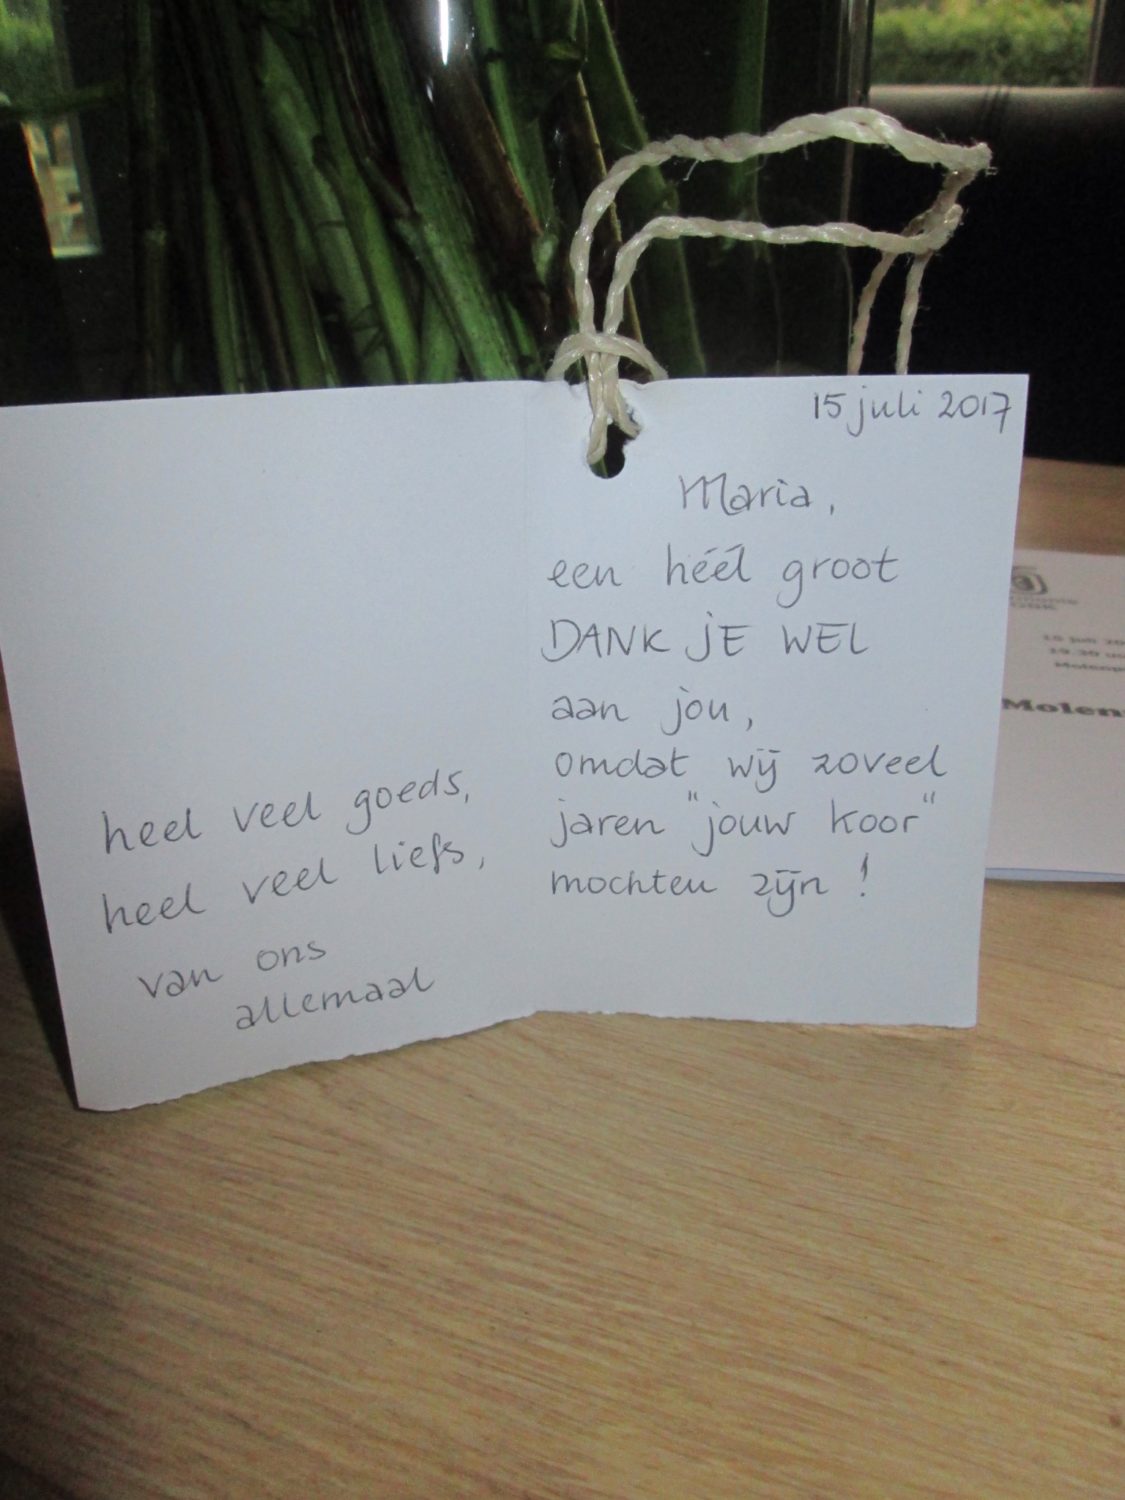 15 juli 2017
Maria,
een héél groot
DANK JE WEL
aan jou,
omdat wij zoveel
jaren "jouw koor"
mochten zijn !
heel veel goeds,
heel veel liefs,
van ons
allemaal
15 juli 20
19.30 uu
Molenp
Molen